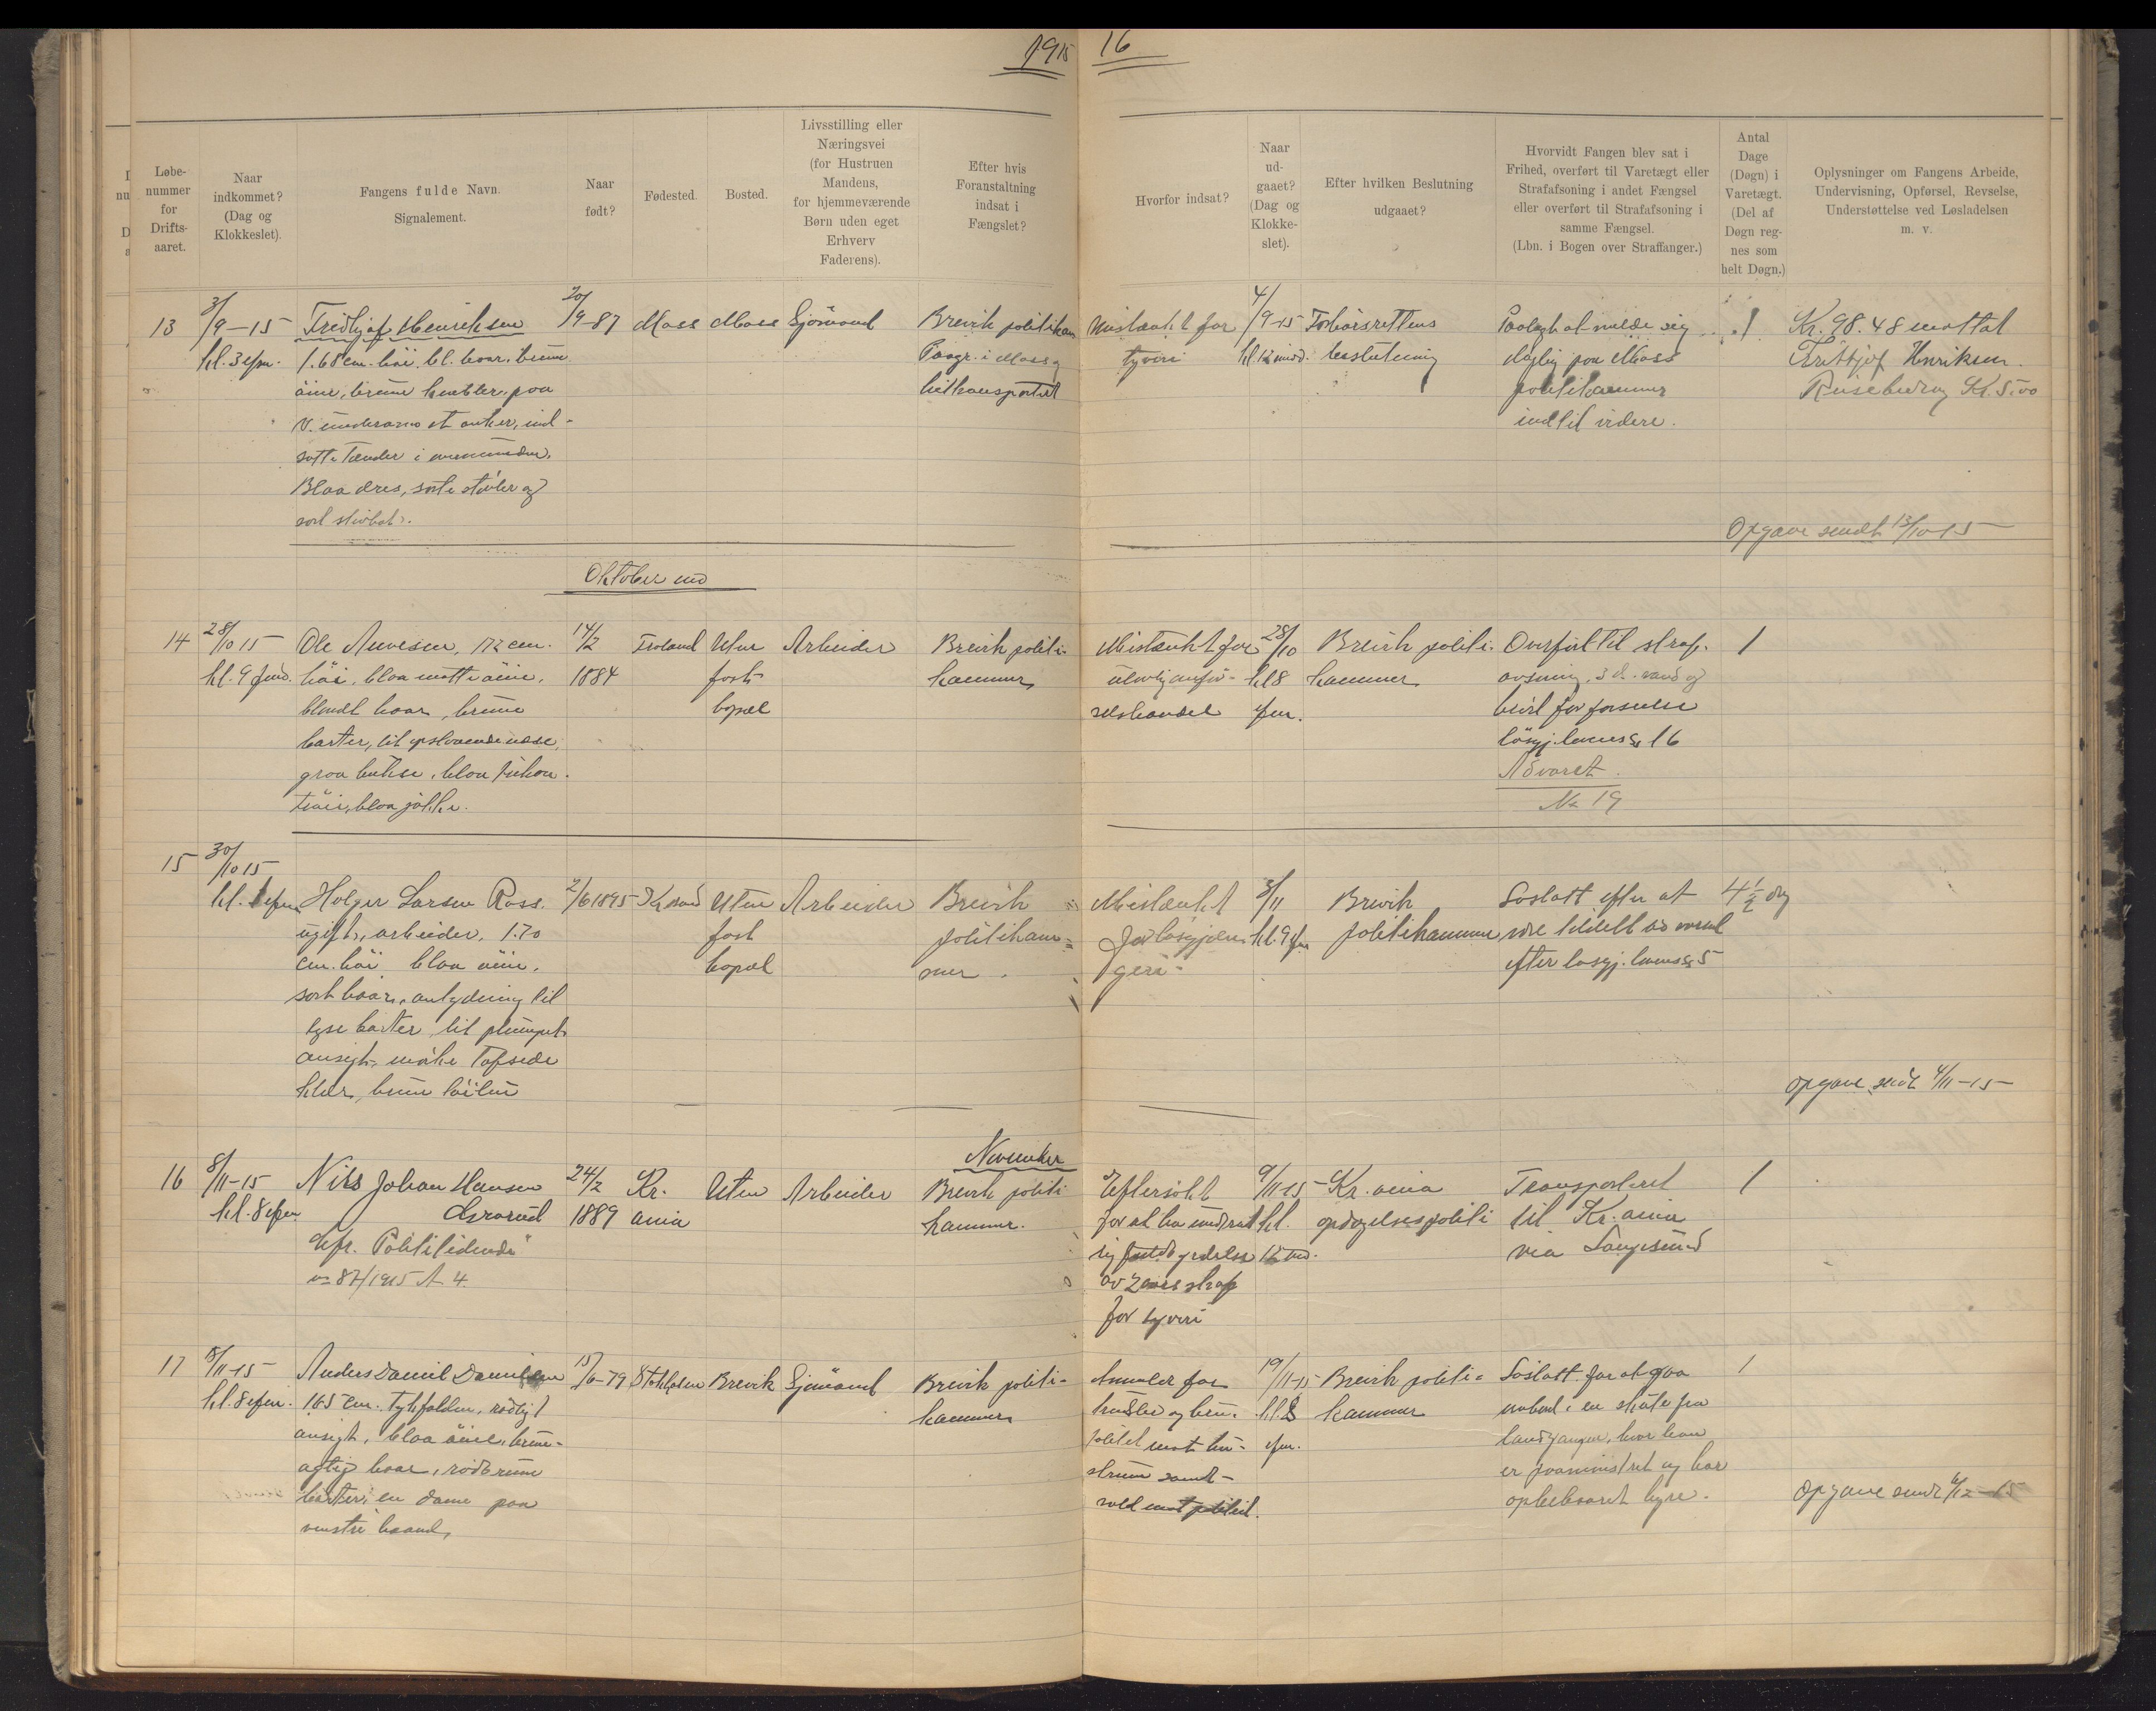 1915
16
Løbe-
nummer
for
Drifts-
aaret.
Naar
indkommet?
(Dag og
Klokkeslet).
Fangens fulde Navn.
Signalement.
Naar
født?
Fødested.
Bosted.
Livsstilling eller
Næringsvei
(for Hustruen
Mandens,
for hjemmeværende
Børn uden eget
Erhverv
Faderens).
Efter hvis
Foranstaltning
indsat i
Fængslet?
Hvorfor indsat?
Naar
ud-
gaaet?
(Dag og
Klokke-
slet).
Efter hvilken Beslutning
udgaaet?
Hvorvidt Fangen blev sat i
Frihed, overført til Varetægt eller
Strafafsoning i andet Fængsel
eller overført til Strafafsoning i
samme Fængsel.
(Lbn. i Bogen over Straffanger.)
Antal
Dage
(Døgn) i
Varetægt.
(Del af
Døgn reg-
nes som
helt Døgn.)
Oplysninger om Fangens Arbeide,
Undervisning, Opførsel, Revselse,
Understøttelse ved Løsladelsen
m. v.
13
3/9-15
kl. 3 efm.
Fredhjof Henriksen
1.68 cm. höi, bl. haar, brune
öine, brune barter, paa
v. underarm et anker, ind-
satte tænder i overmunden.
Blaa dres, sorte støvler og
sort stivhat.
20/9-87
Moss
Moss
Sjömand
Brevik politikam
Paagr. i Moss og
hittransportert
Mistænkt for
tyveri
4/9-15
kl. 12 mid.
Forhörsrettens
beslutning
Paalagt at melde sig
daglig paa Moss
politikammer
indtil videre.
1
Kr. 98.48 mottat
Frithjof Henriksen.
Reisebidrag Kr. 5.00
Opgave sendt 13/10-15
Oktober md
14
28/10 15
kl. 9 fmd.
Ole Auvesen, 172 cm.
höi, blaa matte öine,
blondt haar, brune
barter, lit opstaaende næse,
graa bukse, blaa
tröie, blaa jakke.
14/2
1884
Froland
Uten
fast
bopæl
Arbeider
Brevik politi-
kammer
Mistænkt for
ulovlig
selshandel
28/10
kl 8
efm.
Brevik politi-
kammer
Overført til straf-
avsoning, 3 d. vand og
bröd for forseelse
lösgj. lovens § 16
Advaret.
No 19
1
15
30/10 15
kl. 1 efm
Holger Larsen Ross.
ugift, arbeider, 1.70
cm. höi, blaa öine,
sort haar, antydning til
lyse barter, lit plumpet
ansigt, mörke tøfsede
klær, brun
2/6 1895
Kr.sand
Uten
fast
bopæl
Arbeider
Brevik
politikam-
mer.
Mistænkt
for lösgjæn-
geri-
3/11
kl. 9 fm
Brevik
politikammer
Löslatt efter at
være tildelt advarsel
efter løsgj. lovens § 5
4 1/2 dag
opgave sendt 4/11-15
November
16
8/11-15
kl. 8 efm
Nils Johan Hansen
Aasrud
Efr. "Politilidende"
no 87/1915 A 4.
24/2
1889
Kr.
ania
Uten
Arbeider
Brevik politi
kammer.
Eftersökt
for at ha unddrat
sig fuldbyrdelse
av 2 aars straf
for tyveri
9/11-15
kl.
12 md.
Kr.ania
opdagelsespoliti
Transportert
til Kr.ania
via Langesund
1
17
18/11-15
kl. 8 efm.
Anders Daniel Danielsen
165 cm. tykfalden, rödligt
ansigt, blaa öine, brun-
agtig haar, rödbrune
barter, en dame paa
venstre haand,
15/6-79
Stokholm
Brevik
Sjömand
Brevik politi-
kammer
Anmeldt for
trusler og
mot hu-
strum samt
vold mot politiet.
19/11-15
kl. 8
efm.
Brevik politi-
kammer
Löslatt for at gaa
ombord i en skute fra
Landgangen, hvor han
er paamönstret og har
opbebaaret hyre.
1
Opgave sendt 6/12-15